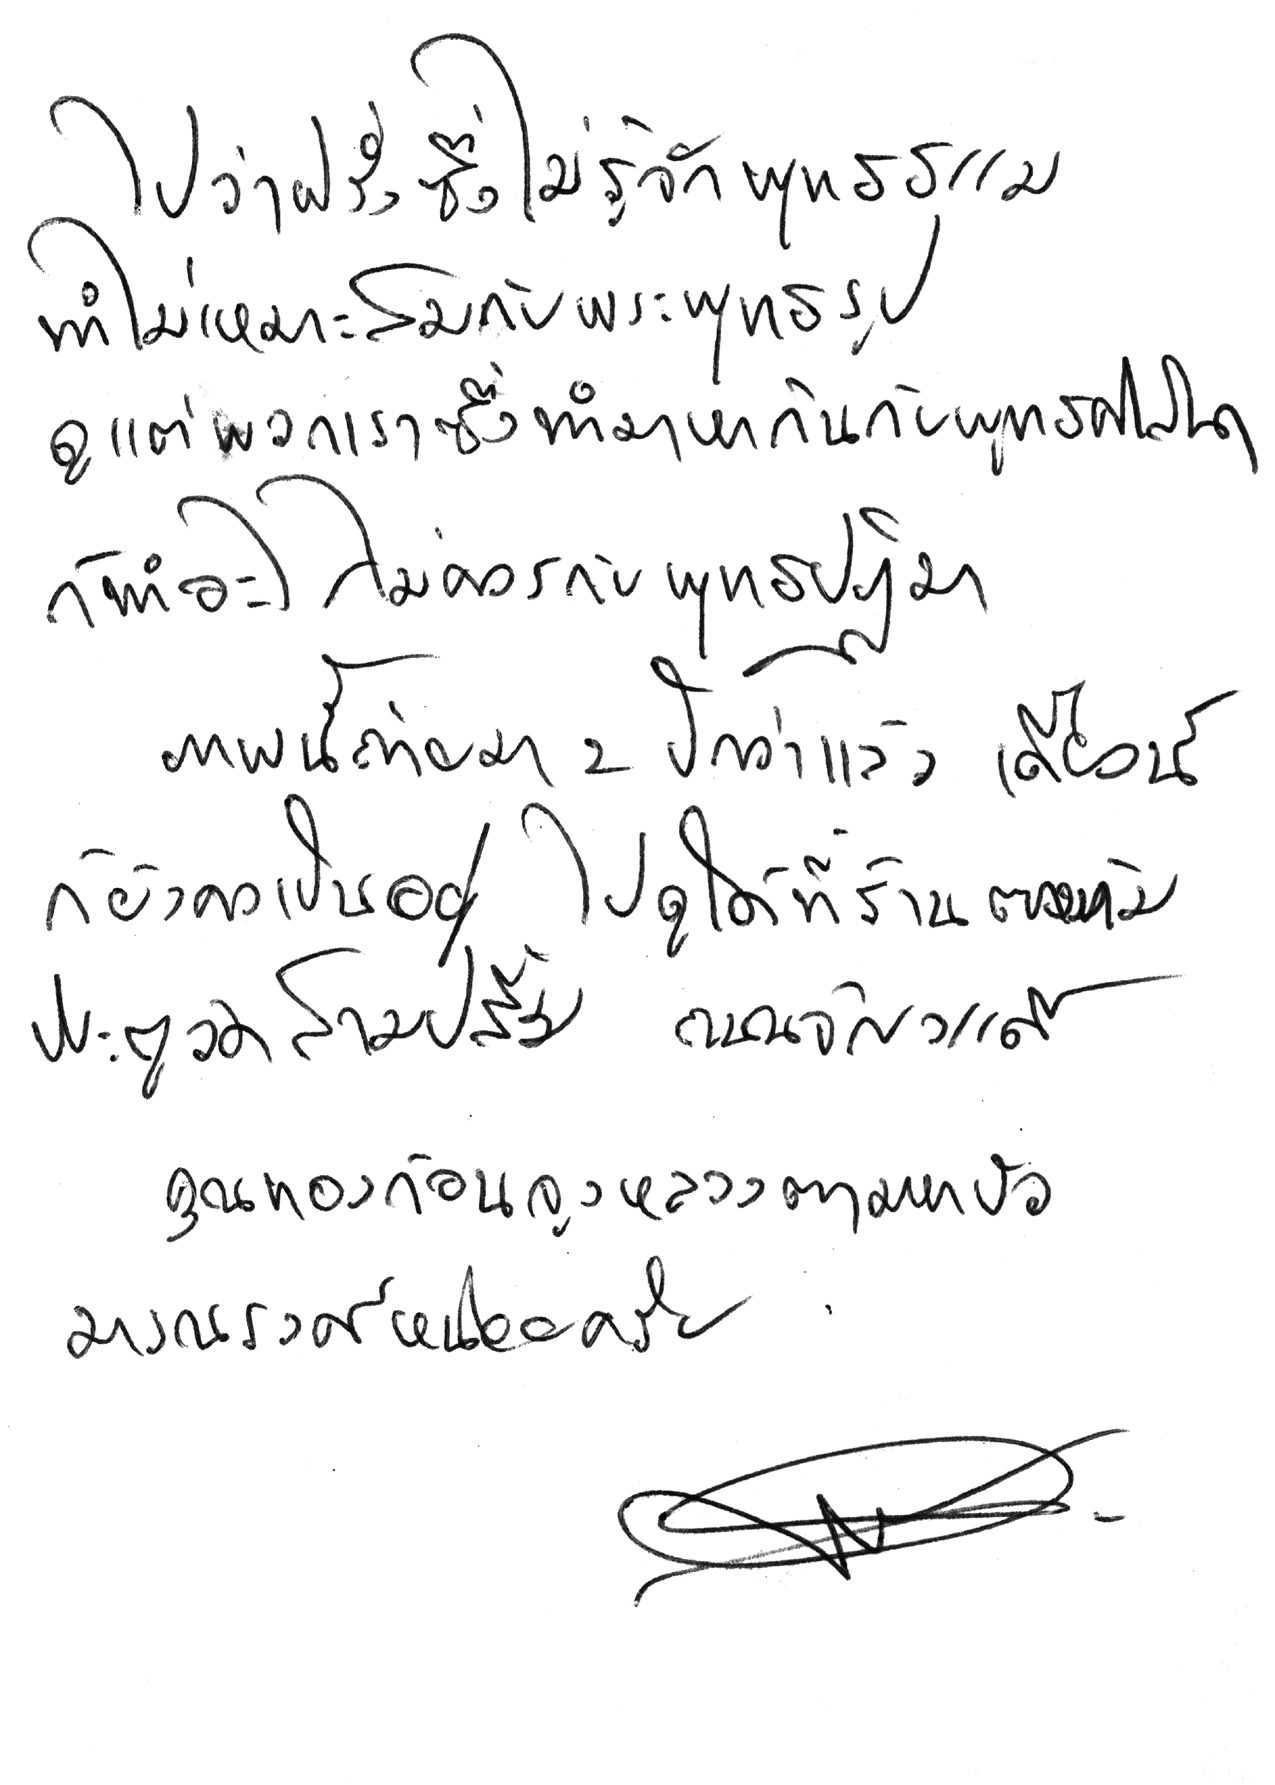 ไปว่าฝรั่งซึ่งไม่รู้จักพุทธธรรม
ทำไม่เหมาะสมกับพระพุทธรูป
ดูแต่พวกเราซึ่งทำมาหากินกับพุทธศาสนา
ก็ทำอะไร ไม่ควรกับพุทธปฏิมา
ภาพนี้ถ่ายมา 2 ปีกว่าแล้ว เดี๋ยวนี้
ก็ยังคงเป็นอยู่ ไปดูได้ที่ร้าน
ประตูวัดสามปลื้ม ถนนจักรวรรดิ
คุณทองก้อนจูงหลวงตามหาบัว
มารณรงค์หน่อยครับ